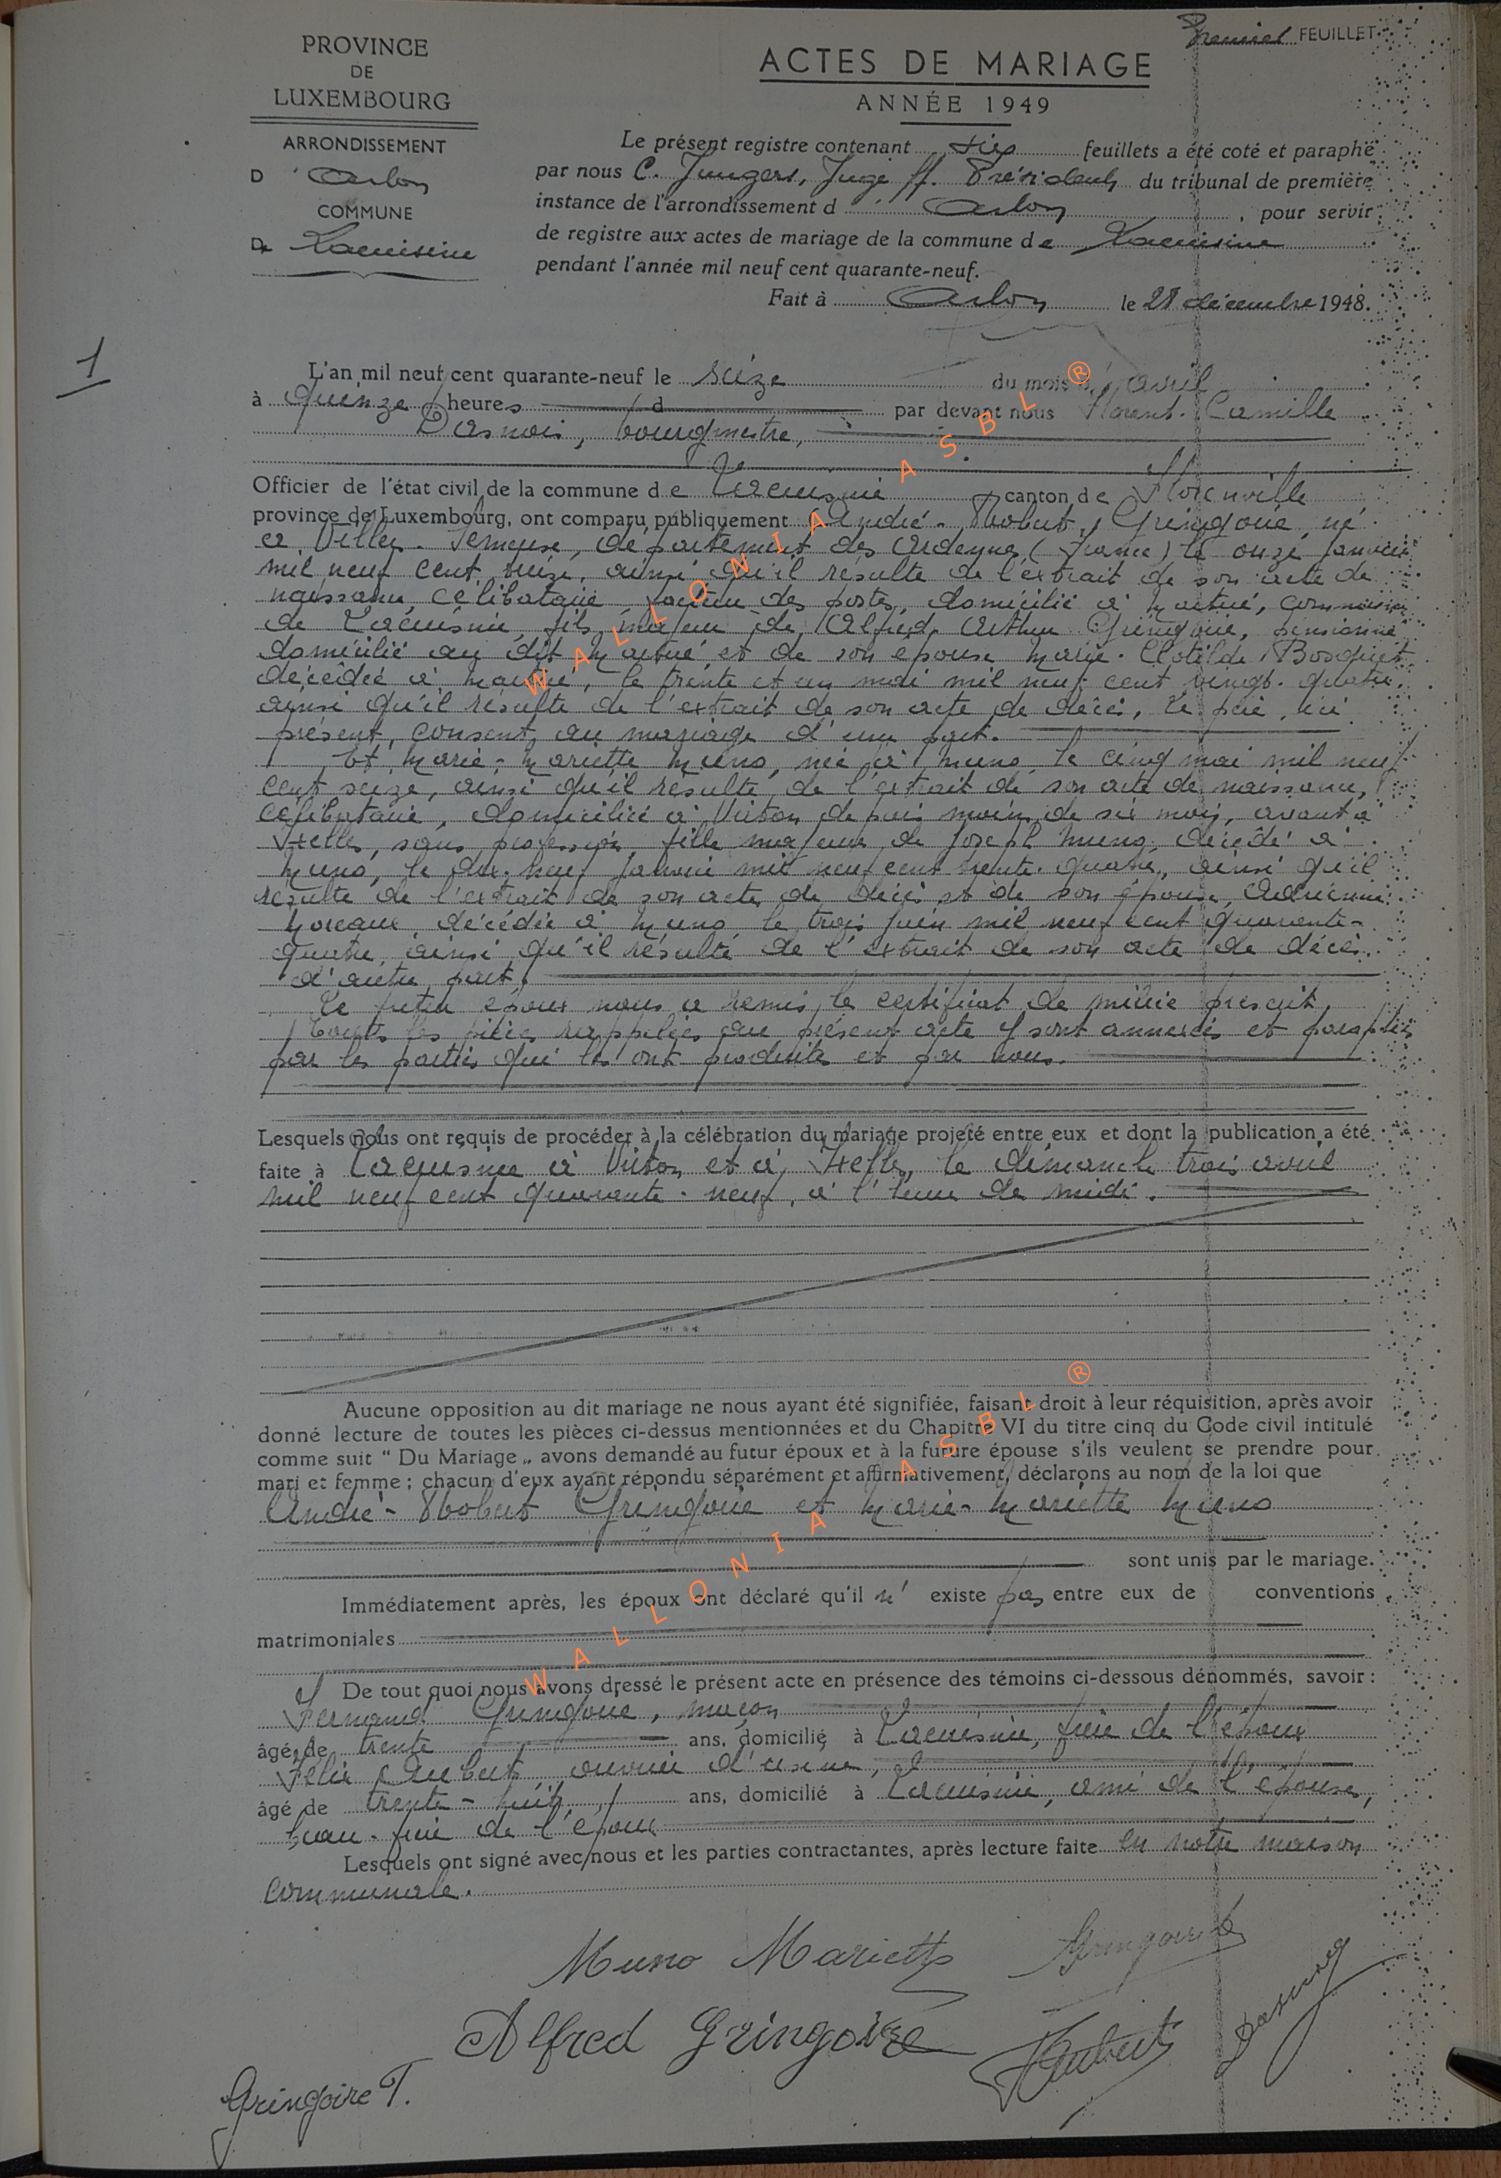 Premier FEUILLET
PROVINCE
DE
LUXEMBOURG
ARRONDISSEMENT
D'Arlon
COMMUNE
De Lacuisine
ACTES DE MARIAGE
ANNÉE 1949
Le présent registre contenant six feuillets a été coté et paraphé
par nous C. Jungers, Juge ff. Président du tribunal de première
instance de l'arrondissement d Arlon, pour servir
de registre aux actes de mariage de la commune de Lacuisine
pendant l'année mil neuf cent quarante-neuf.
Fait à Arlon le 28 décembre 1948.
1
L'an mil neuf cent quarante-neuf le seize du mois d'avril
à quinze heures d par devant nous Florent-Camille
Dasnois, bourgmestre,
Officier de l'état civil de la commune de Lacuisine canton de Florenville
province de Luxembourg, ont comparu publiquement André-Robert Gringoire, né
à Villers-Semeuse, département des Ardennes (France) le onze janvier
mil neuf cent treize, ainsi qu'il résulte de l'extrait de son acte de
naissance, célibataire, facteur des postes, domicilié à Martué, commune
de Lacuisine, fils majeur de Alfred Arthur Gringoire, pensionné
domicilié au dit Martué, et de son épouse Marie-Clotilde Bosquet
décédée à Martué, le trente et un mai mil neuf cent vingt-quatre
ainsi qu'il résulte de l'extrait de son acte de décès, le père, ici
présent, consent au mariage d'une part.
Et Marie-Mariette Muno, née à Muno, le cinq mai mil neuf
cent seize, ainsi qu'il résulte de l'extrait de son acte de naissance,
célibataire, domiciliée à Virton depuis moins de six mois, avant à
Ixelles, sans profession, fille majeure de Joseph Muno, décédé à
Muno, le dix-neuf janvier mil neuf cent trente-quatre, ainsi qu'il
résulte de l'extrait de son acte de décès et de son épouse, Adrienne
Moreaux, décédée à Muno le trois juin mil neuf cent quarante-
quatre, ainsi qu'il résulte de l'extrait de son acte de décès.
d'autre part.
Le futur époux nous a remis le certificat de milice prescrit.
Toutes les pièces rappelées au présent acte y sont annexées et paraphées
par les parties qui les ont produites et par nous.
Lesquels nous ont requis de procéder à la célébration du mariage projeté entre eux et dont la publication a été
faite à Lacuisine à Virton et à Ixelles, le dimanche trois avril
mil neuf cent quarante-neuf, à l'heure de midi.
Aucune opposition au dit mariage ne nous ayant été signifiée, faisant droit à leur réquisition, après avoir
donné lecture de toutes les pièces ci-dessus mentionnées et du Chapitre VI du titre cinq du Code civil intitulé
comme suit “ Du Mariage „ avons demandé au futur époux et à la future épouse s'ils veulent se prendre pour
mari et femme ; chacun d'eux ayant répondu séparément et affirmativement, déclarons au nom de la loi que
André-Robert Gringoire et Marie-Mariette Muno
sont unis par le mariage.
Immédiatement après, les époux ont déclaré qu'il n'existe pas entre eux de conventions
matrimoniales
De tout quoi nous avons dressé le présent acte en présence des témoins ci-dessous dénommés, savoir :
Fernand Gringoire, maçon
âgé de trente ans, domicilié à Lacuisine, frère de l'époux
Félix Aubert, ouvrier d'usine,
âgé de trente-huit ans, domicilié à Lacuisine, ami de l'épouse,
beau-frère de l'époux
Lesquels ont signé avec nous et les parties contractantes, après lecture faite en notre maison
communale.
Muno Mariette
Gringoire
Alfred Gringoire
F Aubert
Dasnois
Gringoire F.
WALLONIA ASBL ®
WALLONIA ASBL ®